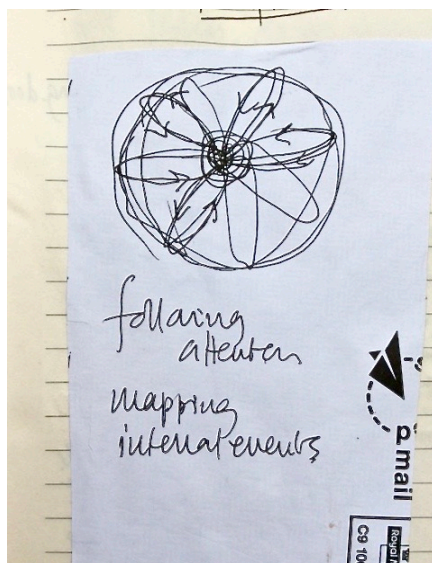 following
attention
mapping
internal events
mail
Royal
C9 10